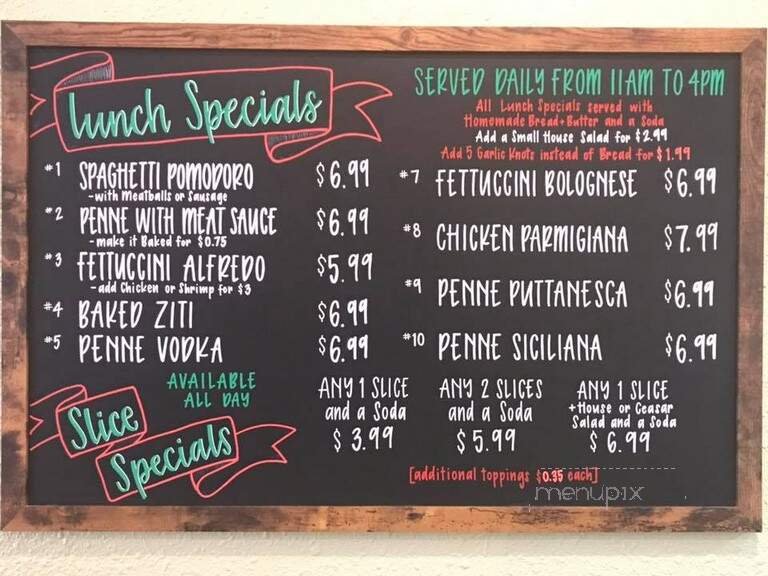 Lunch Specials
SERVED DAILY FROM 11AM TO 4PM
All Lunch Specials served with
Homemade Bread+Butter and a Soda
Add a Small House Salad for $2.99
Add 5 Garlic Knots instead of Bread for $1.99
#1 SPAGHETTI POMODORO $6.99
-with Meatballs or Sausage
#2 PENNE WITH MEAT SAUCE $6.99
-make it Baked for $0.75
#3 FETTUCCINI ALFREDO $5.99
-add Chicken or Shrimp for $3
#4 BAKED ZITI $6.99
#5 PENNE VODKA $6.99
#7 FETTUCCINI BOLOGNESE $6.99
#8 CHICKEN PARMIGIANA $7.99
#9 PENNE PUTTANESCA $6.99
#10 PENNE SICILIANA $6.99
Slice
Specials
AVAILABLE
ALL DAY
ANY 1 SLICE
and a Soda
$3.99
ANY 2 SLICES
and a Soda
$5.99
ANY 1 SLICE
+House or Ceasar
Salad and a Soda
$6.99
[additional toppings $0.35 each]
menupix